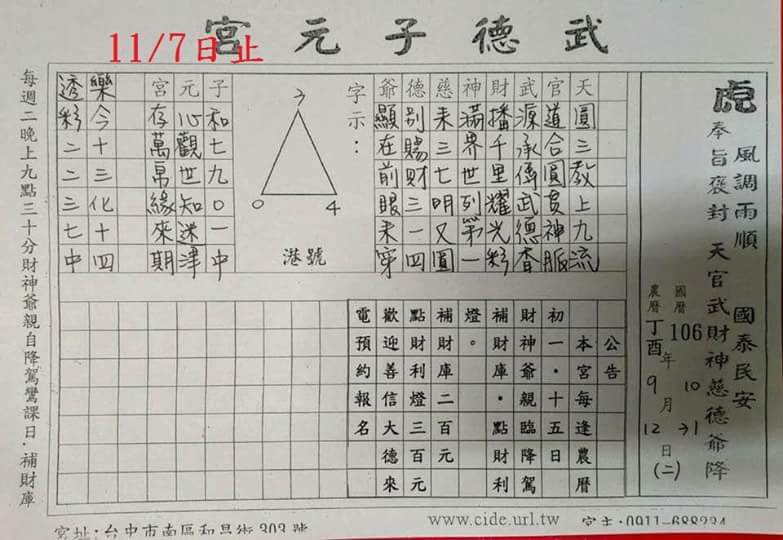 武德子元宮
11/7日止
虎
風調雨順 國泰民安
奉旨褒封 天官武財神慈德爺降
國曆 106年10月31日(二)
農曆 丁酉年9月12日
天圓三教上九流
官道合圓貫神脈
武源承傳武德香
財播千里耀光彩
神滿界世列第一
慈未三七明又圓
德別賜財三一四
爺顯在前眼未穿
字示：
0
4
港號
子和七九0一中
元心觀世知迷津
宮存萬帛緣來期
樂今十三化十四
透彩二二三七中
公告
本宮每逢農曆
初一．十五日
財神爺親臨降駕
補財庫．點財利
燈。
補財庫二百元
點財利燈三百元
歡迎善信大德來
電預約報名
每週二晚上九點三十分財神爺親自降駕鸞課日．補財庫
宮址:台中市南區和昌街303號
www.cide.url.tw
宮主:0911-688234